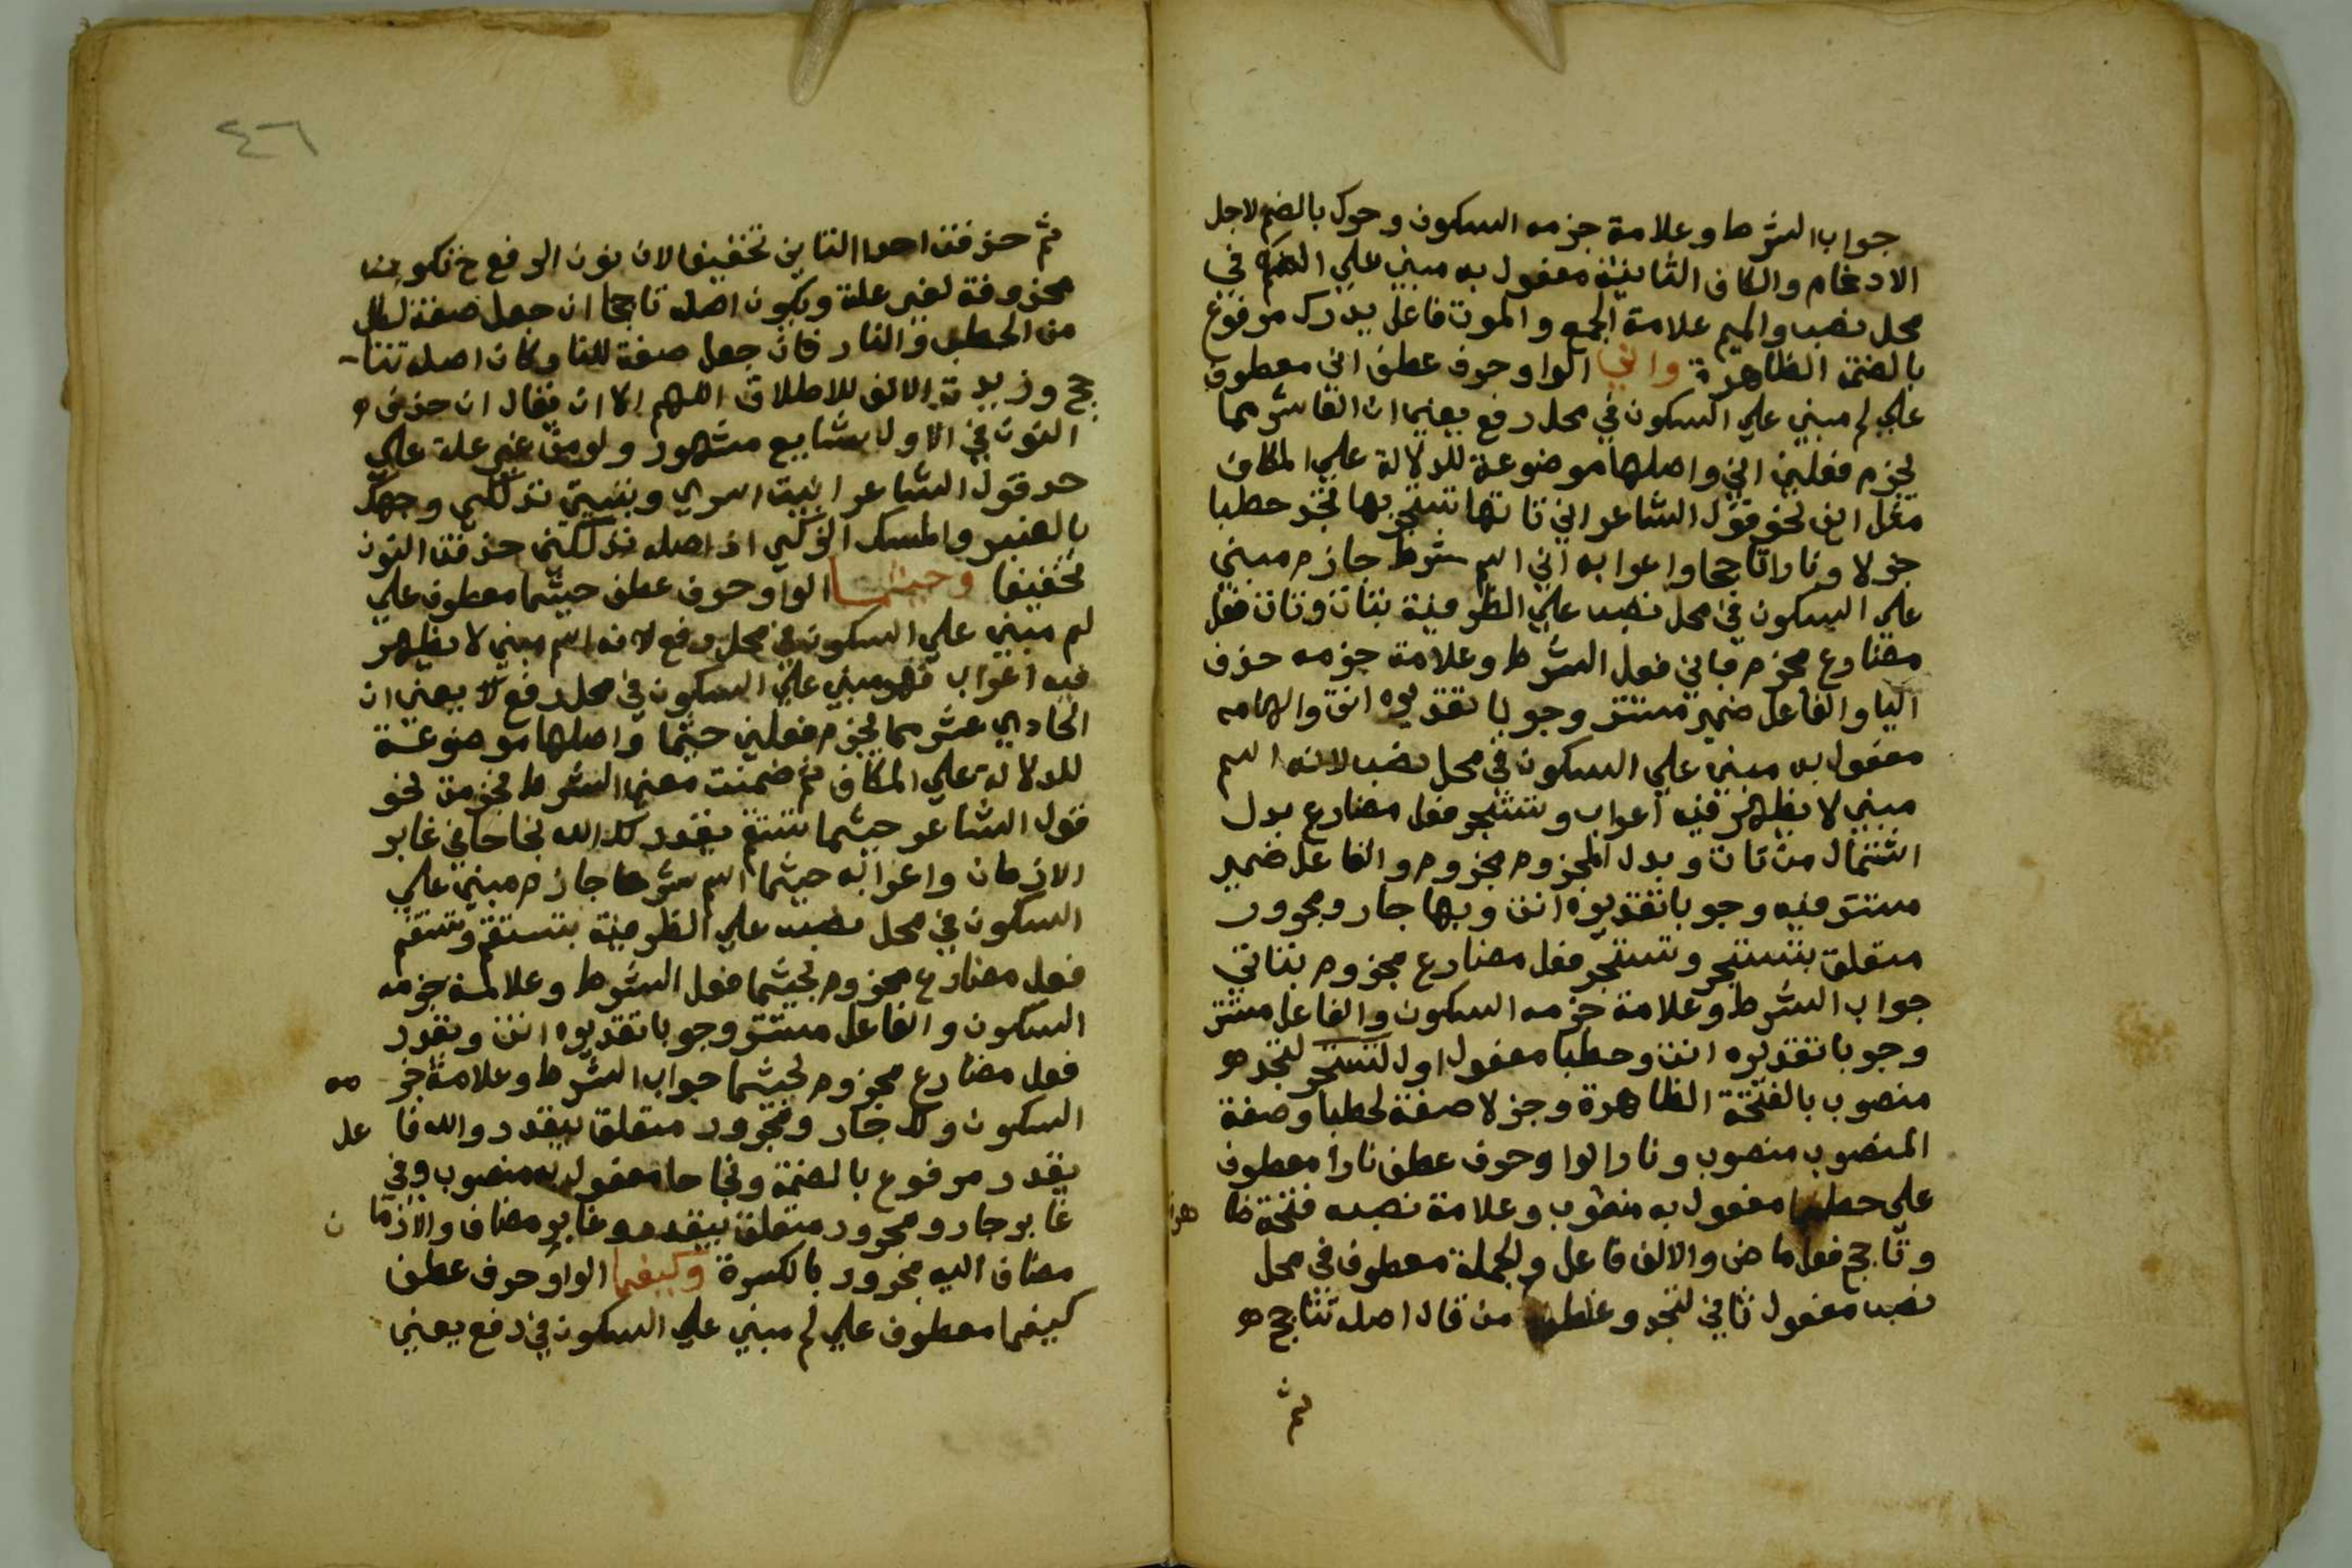 جواب الشرط وعلامة جزمه السكون وحرك بالضم لاجل
الادغام والكاف الثانية مفعول به مبني علي الضم في
محل نصب والميم علامة الجمع والموت فاعل يدرك مرفوع
بالضمة الظاهرة واني الواو حرف عطف اني معطوف
علي لم مبني علي السكون في محل رفع يعني ان العاشر مما
يجزم فعلين اني واصلها موضوعة للدلالة علي المكان
مثل اين نحو قول الشاعر اني تاتها تستجر بها تجد حطبا
جزلا ونارا تاججا واعرابه اني اسم شرط جازم مبني
علي السكون في محل نصب علي الظرفية بتات وتات فعل
مضارع مجزم باني فعل الشرط وعلامة جزمه حذف
اليا والفاعل ضمير مستتر وجوبا تقديره انت والهامه
مفعول به مبني علي السكون في محل نصب لانه اسم
مبني لا يظهر فيه اعراب وتستجر فعل مضارع بدل
اشتمال من تات وبدل المجزوم مجزوم والفاعل ضمير
مستتر فيه وجوبا تقديره انت وبها جار ومجرور
متعلق بتستجر وتستجر فعل مضارع مجزوم بتاتي
جواب الشرط وعلامة جزمه السكون والفاعل مستتر
وجوبا تقديره انت وحطبا مفعول اول لتستجر لتجد هو
منصوب بالفتحة الظاهرة وجزلا صفة لحطبا وصفة
المنصوب منصوب ونارا الواو حرف عطف نارا معطوف
علي حطبا مفعول به منصوب وعلامة نصبه فتحة ظا هرة
وتاجج فعل ماض والالف فاعل والجملة معطوف في محل
نصب مفعول ثاني لتجد وغلط من قال اصله تتاجج هو
ثم
٤٦
ثم حذفت احدا التاين تخفيفا لان نون الرفع ح تكون
محذوفة لغير علة ويكون اصله تاججا ان جعل صفة لكل
من الحطب والنار فان جعل صفة للنار كان اصله تتا
جج وزيدت الالف للاطلاق اللهم الا ان يقال ان حذف
النون في الاول شايع مشهور ولو من غير علة علي
حد قول الشاعر ابيت اسري وتبيتي تدلكي وجهك
بالعنبر والمسك الزكي اذ اصله تدلكين حذفت النون
تخفيفا وحيثما الواو حرف عطف حيثما معطوف علي
لم مبني علي السكون في محل رفع لانه اسم مبني لا يظهر
فيه اعراب فهو مبني علي السكون في محل رفع لا يعني ان
الحادي عشر مما يجزم فعلين حيثما واصلها موضوعة
للدلالة علي المكان ثم ضمنت معني الشرط فجزمت نحو
قول الشاعر حيثما تستقم يقدر لك الله نجاحا في غابر
الازمان واعرابه حيثما اسم شرط جازم مبني علي
السكون في محل نصب علي الظرفية بتستقم وتستقم
فعل مضارع مجزوم بحيثما فعل الشرط وعلامة جزمه
السكون والفاعل مستتر وجوبا تقديره انت ويقدر
فعل مضارع مجزوم بحيثما جواب الشرط وعلامة جز مه
السكون ولك جار ومجرور متعلق بيقدر والله فا عل
يقدر مرفوع بالضمة ونجاحا مفعول به منصوب وفي
غابر جار ومجرور متعلق بيقدر وغابر مضاف والازما ن
مضاف اليه مجرور بالكسرة وكيفما الواو حرف عطف
كيفما معطوف علي لم مبني علي السكون في رفع يعني